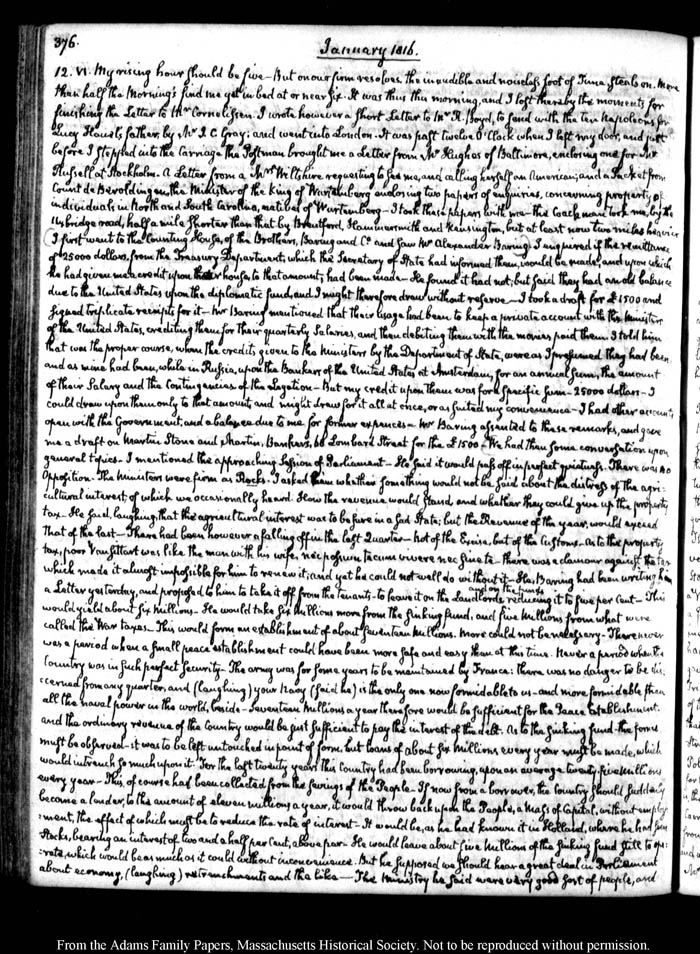 376.
January 1816.
12. VI. My rising hour should be five — But on our firm resolves the inaudible and noiseless foot of Time steals on. More
than half the Mornings find me yet in bed at or near six. It was thus this morning, and I lost thereby the moments for
finishing the Letter to Mr Cornelissen. I wrote however a short Letter to Mr R. Boyd, to send with the ten Napoleons for
Lucy Houel's father, by Mr J. C. Gray; and went into London. It was past twelve O'Clock when I left my door, and just
before I stepped into the Carriage the Postman brought me a Letter from Mr Hughes of Baltimore, enclosing one for Mr
Russell at Stockholm. A Letter from a Mrs Wiltshire requesting to see me, and calling herself an American; and a Packet from
Count de Beroldingen the Minister of the king of Wurtemberg enclosing two papers of enquiries, concerning property, of
individuals in North and South Carolina, natives of Wurtemberg — I took these papers with me — the Coachman took me, by the
Uxbridge road, half a mile shorter than that by Brentford, Hammersmith and Kensington, but at least now two miles heavier
I first went to the Counting House, of the Brothers, Baring and Co. and saw Mr Alexander Baring. I enquired if the remittance
of 25000 dollars, from the Treasury Department, which the Secretary of State had informed them, would be made, and upon which
he had given me a credit upon their house, to that amount, had been made — He found it had not; but said they had an old balance
due to the United States upon the diplomatic fund, and I might therefore draw without reserve — I took a draft for £1500 and
signed triplicate receipts for it — Mr Baring mentioned that their usage had been to keep a private account with the Minister
of the United States, crediting them for their quarterly Salaries, and then debiting them with the monies paid them. I told him
that was the proper course, when the credits given to the Ministers by the Department of State, were as I presumed they had been
and as mine had been, while in Russia, upon the Bankers of the United States at Amsterdam, for an annual sum, the amount
of their Salary and the Contingencies of the Legation — But my credit upon them was for a specific sum — 25000 dollars — I
could draw upon them only to that amount, and might draw for it all at once, or as suited my convenience — I had other accounts
open with the Government, and a balance due to me for former expences — Mr Baring assented to these remarks, and gave
me a draft on Martin, Stone and Martin, Bankers, 68 Lombard Street for the £1500. We had then some conversation upon
general topics — I mentioned the approaching Session of Parliament — He said it would pass off in perfect quietness. There was no
Opposition. The Ministers were firm as Rocks. I asked him whether something would not be said about the distress of the agri-
cultural interest of which we occasionally heard. How the revenue would stand, and whether they could give up the property
tax. He said, laughing, that the agricultural interest was to be sure in a sad State; but the Revenue of the year, would exceed
that of the last — There had been however a falling off in the last Quarter — not of the Excise, but of the Customs. As to the property
tax, poor Vansittart was like the man with his wife, nec possum tecum vivere nec sine te — there was a clamour against the tax
which made it almost impossible for him to renew it; and yet he could not well do without it — He, Baring had been writing him
a Letter yesterday, and proposed to him to take it off from the tenants; to leave it on the Landlords and on the funds reducing it to five per Cent — This
would yield about six millions — He would take six Millions more from the sinking fund, and five Millions from what were
called the War taxes. This would form an establishment of about seventeen Millions. More could not be necessary. There never
was a period when a small peace establishment could have been more safe and easy than at this time. Never a period when the
Country was in such perfect security. The army was for some years to be maintained by France: there was no danger to be dis-
cerned from any quarter, and (laughing) your Navy (said he) is the only one now formidable to us — and more formidable than
all the naval power in the world, beside — Seventeen Millions a year therefore would be sufficient for the Peace Establishment.
and the ordinary revenue of the Country would be just sufficient to pay the interest of the debt. As to the sinking fund — the forms
must be observed — it was to be left untouched in point of form, but loans of about six Millions every year must be made, which
would intrench so much upon it. For the last twenty years this Country had been borrowing, upon an average twenty-five Millions
every year — This of course had been collected from the savings of the People — If now from a borrower, the Country should suddenly
become a lender, to the amount of eleven millions a year, it would throw back upon the People, a Mass of Capital, without employ-
ment, the effect of which must be to reduce the rate of interest — It would be, as he had known it in Holland, where he had seen
Stocks, bearing an interest of two and a half per Cent, above par — He would leave about five Millions of the sinking fund still to ope-
rate, which would be as much as it could without inconvenience. But he supposed we should hear a great deal in Parliament
about economy, (laughing) retrenchments and the like — The Ministry he said were very good sort of people, and
From the Adams Family Papers, Massachusetts Historical Society. Not to be reproduced without permission.